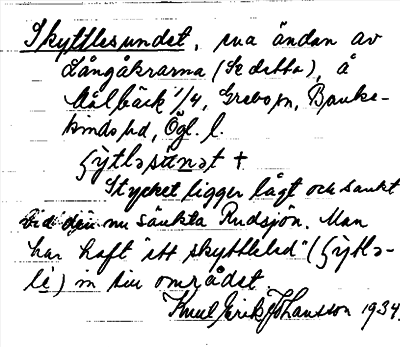 Skyttlesundet, ena ändan av
Långåkrarna (Se detta), å
Målbäck 1/4, Grebo sn, Banke-
kinds hd, Ögl. l.
ʃỳtləsɯ̀nət +
Stycket ligger lågt och sankt
vid den nu sänkta Rudsjön. Man
har haft "ett skyttleled" (ʃỳtlə-
le) in till området.
Knut Erik Johansson 1934.